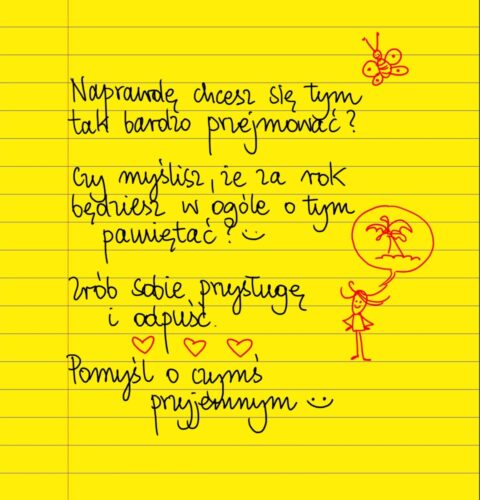 Naprawdę chcesz się tym
tak bardzo przejmować?
Czy myślisz, że za rok
będziesz w ogóle o tym
pamiętać?
Zrób sobie przysługę
i odpuść.
Pomyśl o czymś
przyjemnym